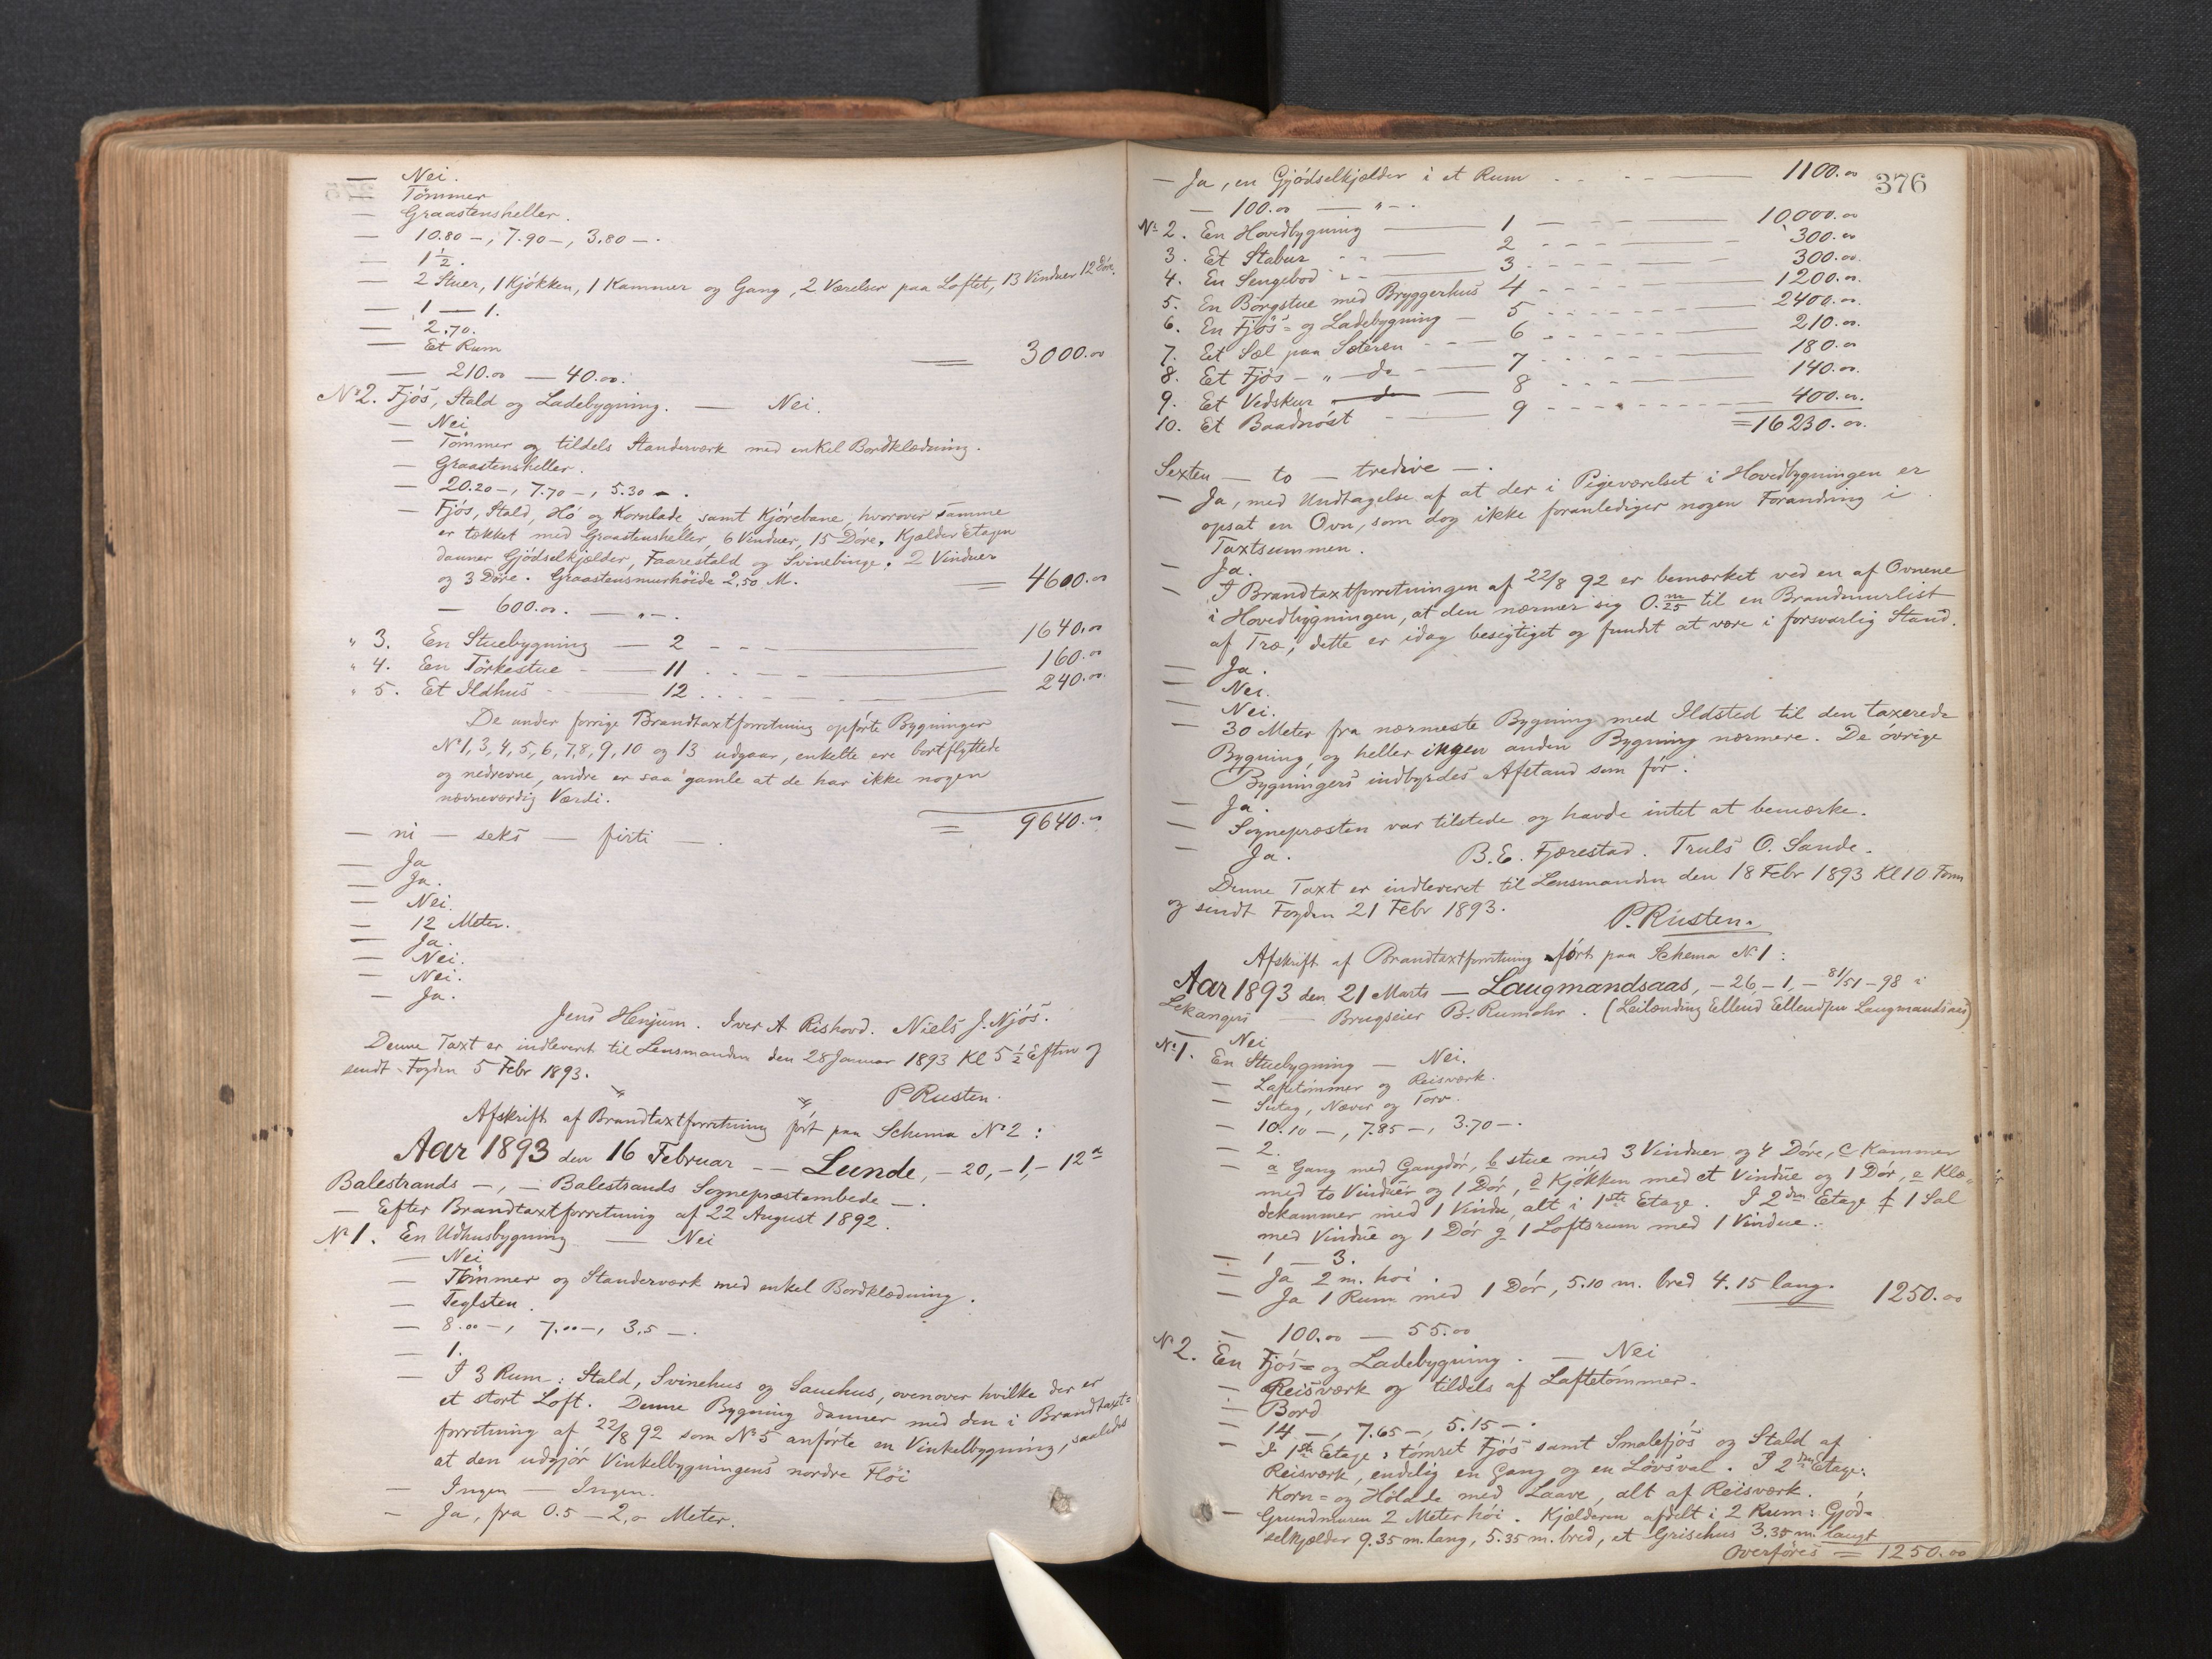 — Nei.
— Tömmer
— Graastensheller.
— 10.80 —, 7.90 —, 3.80 —.
— 1 1/2.
— 2 Stuer, 1 Kjökken, 1 Kammer og Gang, 2 Værelser paa Loftet, 13 Vinduer 12 Döre.
— 1 — 1.
— 2.70.
— Et Rum
= 3000.00
— 210.00 — 40.00.
No 2. Fjös, Stald og Ladebygning. — Nei.
— Nei
— Tömmer og tildels Standerværk med enkel Bordklædning.
— Graastensheller.
— 20.20 —, 7.70 —, 5.30 —.
— Fjös, Stald, Hö og Kornlade, samt Kjörebane, hvorover samme
er tækket med Graastensheller, 6 Vinduer, 15 Döre. Kjælder Etagen
danner Gjödselkjælder, Faarestald og Svinebinge. 2 Vinduer
og 3 Döre. Graastensmurhöide 2.50 M. = 4600.00
— 600.00. — „ —.
„ 3. En Stuebygning — 2 - - - 1640.00
„ 4. En Törkestue — 11 - - - 160.00
„ 5. Et Ildhus — 12 - - - 240.00
De under forrige Brandtaxtforretning opförte Bygninger
No 1, 3, 4, 5, 6, 7, 8, 9, 10 og 13 udgaar, enkelte ere bortflyttede
og nedrevne, andre er saa gamle at de har ikke nogen
nævneværdig Værdi.
= 9640.00
— ni — seks — firti — .
— Ja
— Ja.
— Nei.
— 12 Meter.
— Ja.
— Nei.
— Nei.
— Ja.
Jens Henjum. Iver A Rishovd. Niels J. Njös.
Denne Taxt er indleveret til Lensmanden den 28 Januar 1893 Kl 5 1/2 Eftm og
sendt Fogden 5 Febr 1893.
P Rusten.
Afskrift af Brandtaxtforretning fört paa Schema No 2:
Aar 1893 den 16 Februar — — Lunde, — 20, — 1, — 12 a
Balestrands —, — Balestrands Sognepræstembede — .
— Efter Brandtaxtforretning af 22 August 1892.
No 1. En Udhusbygning — Nei
— Nei
— Tömmer og Standerværk med enkel Bordklædning.
— Teglsten.
— 8.00 —, 7.00 —, 3.5 —.
— 1.
— I 3 Rum: Stald, Svinehus og Sauehus, ovenover hvilke der er
et stort Loft. Denne Bygning danner med den i Brandtaxt=
forretning af 22/8 92 som No 5 anförte en Vinkelbygning, saaledes
at den udgjör Vinkelbygningens nordre Flöi
— Ingen — Ingen.
— Ja, fra 0.5 — 2,0 Meter.
376
— Ja, en Gjödselkjælder i et Rum - - - 1100.00
— 100.00 — „ —.
No 2. En Hovedbygning — 1 — 10,000.00
3. Et Stabur - - 2 - - - 300.00
4. En Sengebod - - 3 - - - 300.00.
5. En Borgstue med Bryggerhus 4 - - - 1200.00.
6. En Fjös= og Ladebygning — 5 - - - 2400.00.
7. Et Sæl paa Sæteren - - 6 - - - 210.00.
8. Et Fjös — „ — do - — 7 - - - 180.00
9. Et Vedskur — 8 - - - 140.00.
10. Et Baadnöst — 9 - - - 400.00.
= 16230.00.
Sexten — to — tredive — .
— Ja, med Undtagelse af at der i Pigeværelset i Hovedbygningen er
opsat en Ovn, som dog ikke foranlediger nogen Forandring i
Taxtsummen.
— Ja.
— I Brandtaxtforretningen af 22/8 92 er bemærket ved en af Ovnene
i Hovedbygningen, at den nærmer sig 0.m25 til en Brandmurlist
af Træ; dette er idag besigtiget og fundet at være i forsvarlig Stand.
— Ja.
— Nei.
— Nei.
— 30 Meter fra nærmeste Bygning med Ildsted til den taxerede
Bygning, og heller ingen anden Bygning nærmere. De övrige
Bygningers indbyrdes Afstand som för.
— Ja.
— Sognepræsten var tilstede og havde intet at bemærke.
— Ja. B. E. Fjærestad. Truls O. Sande.
Denne Taxt er indleveret til Lensmanden den 18 Febr 1893 Kl 10 Form
og sendt Fogden 21 Febr 1893.
P. Rusten.
Afskrift af Brandtaxtforretning fört paa Schema No 1:
Aar 1893 den 21 Marts — Laugmandsaas, — 26, — 1, — 81/51 — 98 i
Lekangers — Brugseier B. Rumohr. (Leilænding Ellend Ellendsen Laugmandsaas)
Nei
No 1. En Stuebygning — Nei.
— Laftetömmer og Reisværk.
— Sutag, Næver og Torv.
— 10.10 —, 7.85 —, 3.70 —.
— 2.
— a Gang med Gangdör, b stue med 3 Vinduer og 4 Döre, c Kammer
med to Vinduer og 1 Dör, d Kjökken med et Vindue og 1 Dör, e Klæ=
dekammer med 1 Vindu, alt i 1ste Etage. I 2den Etage f 1 Sal
med Vindue og 1 Dör g 1 Loftsrum med 1 Vindue.
— 1 — 3.
— Ja 2 m. höi.
— Ja 1 Rum med 1 Dör, 5.10 m. bred 4.15 lang. 1250.00
— 100.00 — 55.00
No 2. En Fjös= og Ladebygning. — Nei
— Reisværk og tildels af Laftetömmer.
— Bord
— 14 —, 7.65 —, 5.15 —.
— I 1ste Etage: tömret Fjös samt Smalefjös og Stald af
Reisværk, endelig en Gang og en Lövsval. I 2den Etage:
Korn= og Hölade med Laave, alt af Reisværk.
— Grundmuren 2 Meter höi. Kjælderen afdelt i 2 Rum: Gjöd=
selkjælder 9.35 m. lang, 5.35 m. bred, et Grisehus 3.35 m. langt
Overföres = 1250.00